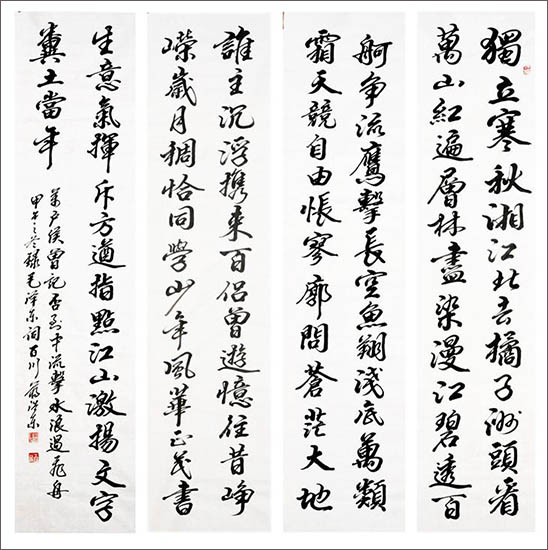 獨立寒秋湘江北去橘子洲頭看
萬山紅遍層林盡染漫江碧透百
舸争流鷹擊長空魚翔淺底萬類
霜天競自由悵寥廓問蒼茫大地
誰主沉浮携来百侶曾遊憶往昔崢
嶸歲月稠恰同學少年風華正茂書
生意氣揮斥方遒指點江山激揚文字
糞土當年
萬戶侯曾記否到中流擊水浪遏飛舟
甲午之冬錄毛澤東詞百川